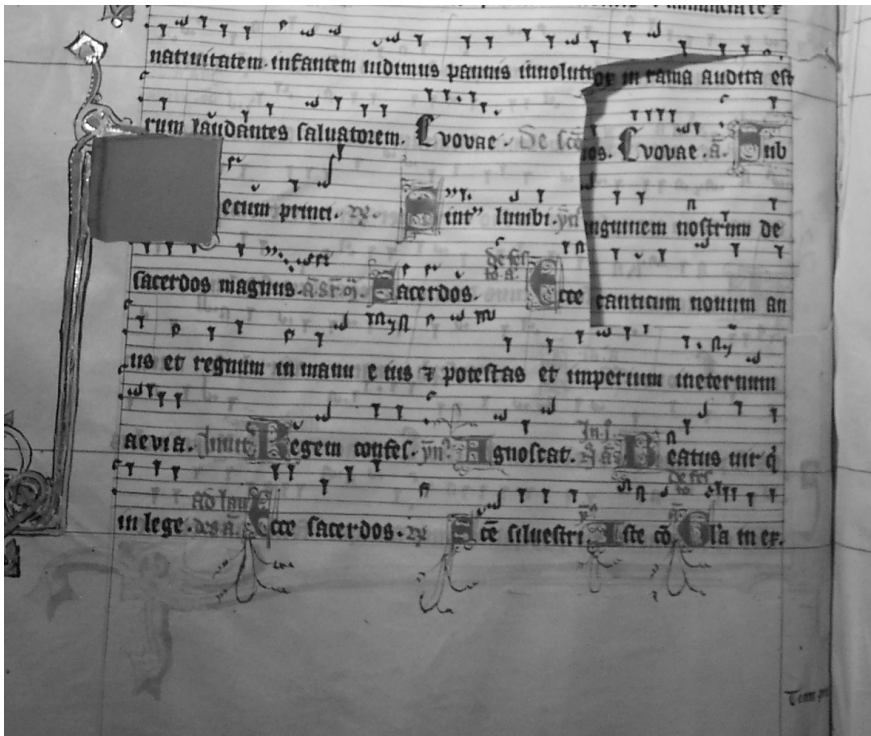 natiuitatem. infantem uidimus pannis inuoluti ox in rama audita est
rum laudantes saluatorem. Evovae. De sco ios. Evovae. ā. Sub
ecum princi. Sint lumbi. nguinem nostrum de
sacerdos magnus. Sacerdos. de fes to a. Ecce canticum nouum an
ius et regnum in manu e ius ⁊ potestas et imperium ineternum
aevia. Inuit. Regem confes. Agnoscat. Beatus uir q̄
in lege. ad lau des ā. Ecce sacerdos. Scē siluestri. Iste cō. Gl'a in ex.